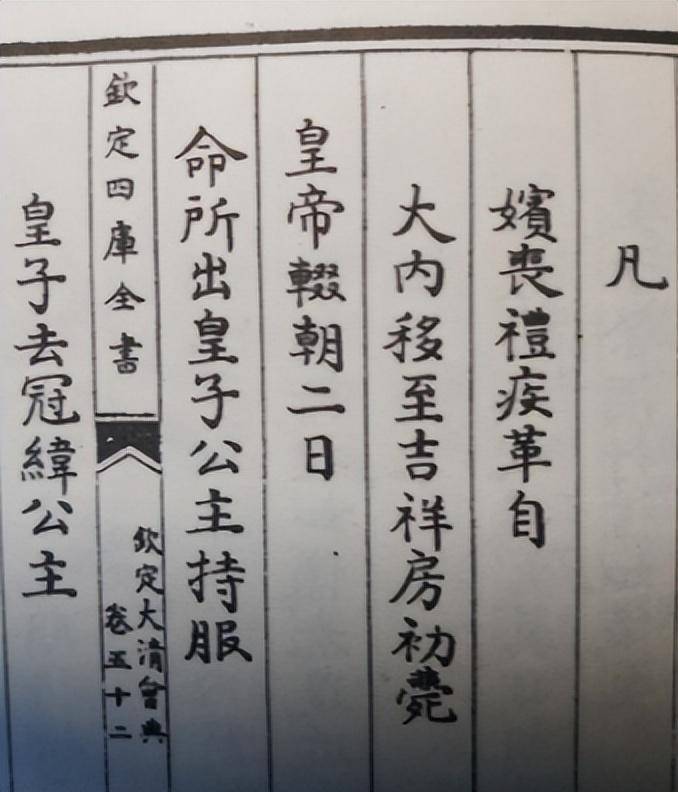 凡
嬪喪禮疾革自
大内移至吉祥房初薨
皇帝輟朝二日
命所出皇子公主持服
欽定四庫全書
欽定大清會典
卷五十二
皇子去冠緯公主